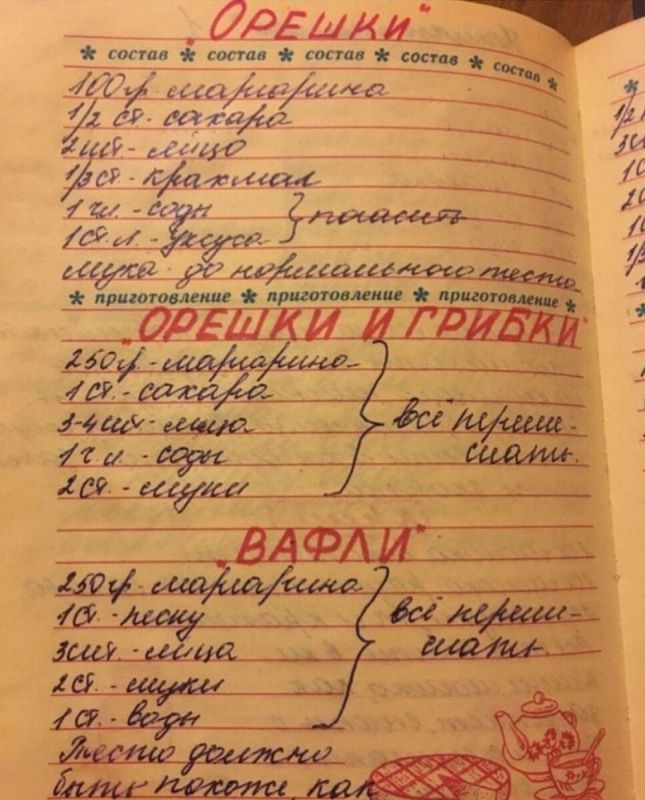 "ОРЕШКИ"
* состав * состав * состав * состав * состав *
100гр. маргарина
1/2 ст. - сахара
2 шт. - яйцо
1/3 ст. - крахмал
1 чл. - соды } погасить
1 ст. л. - уксуса
мука - до нормального теста
* приготовление * приготовление * приготовление *
"ОРЕШКИ И ГРИБКИ"
250гр. - маргарина
1 ст. - сахара
3-4 шт. - яйца } всё переме-
1 ч л. - соды шать.
2 ст. - муки
"ВАФЛИ"
250гр. - маргарина
1 ст. - песку } всё переме-
3 шт. - яйца шать.
2 ст. - муки
1 ст. - воды
Тесто должно
быть похоже, как